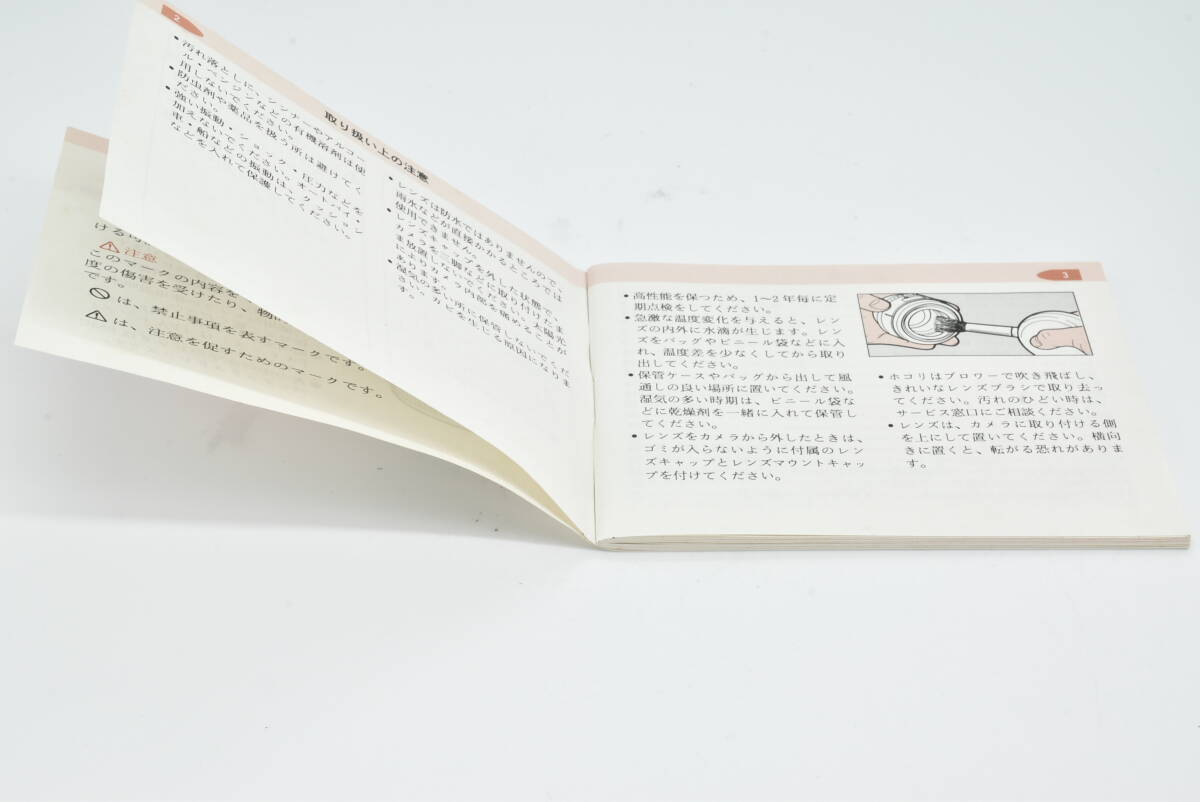 2
取り扱い上の注意
●汚れ落としに、シンナーやアルコー
ル・ベンジンなどの有機溶剤は使
用しないでください。
●防虫剤や薬品を扱う所は避けてく
ださい。
●強い振動・ショック・圧力などを
加えないでください。オートバイ・
車・船などの振動は、クッション
などを入れて保護してください。
●レンズは防水ではありませんので、
雨水などが直接かかるところでは
使用できません。
●レンズキャップを外した状態で、
カメラを三脚などに取り付けたま
ま放置しないでください。太陽光
によりカメラ内部を痛めることが
あります。
●湿気の多い所に保管しないでくだ
さい。カビを生じる原因になりま
す。
ける
⚠注意
このマークの内容を
度の傷害を受けたり、物
です。
は、禁止事項を表すマークです。
⚠は、注意を促すためのマークです。
3
●高性能を保つため、1〜2年毎に定
期点検をしてください。
●急激な温度変化を与えると、レン
ズの内外に水滴が生じます。レン
ズをバッグやビニール袋などに入
れ、温度差を少なくしてから取り
出してください。
●保管ケースやバッグから出して風
通しの良い場所に置いてください。
湿気の多い時期は、ビニール袋な
どに乾燥剤を一緒に入れて保管し
てください。
●レンズをカメラから外したときは、
ゴミが入らないように付属のレン
ズキャップとレンズマウントキャッ
プを付けてください。
●ホコリはブロワーで吹き飛ばし、
きれいなレンズブラシで取り去っ
てください。汚れのひどい時は、
サービス窓口にご相談ください。
●レンズは、カメラに取り付ける側
を上にして置いてください。横向
きに置くと、転がる恐れがありま
す。